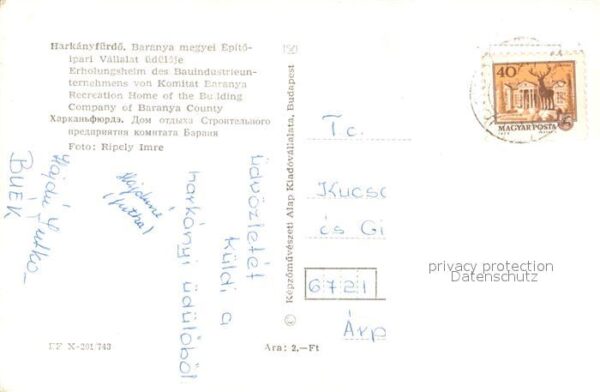 Harkányfürdő. Baranya megyei Építő-
ipari Vállalat üdülője
Erholungsheim des Bauindustrieun-
ternehmens von Komitat Baranya
Recreation Home of the Building
Company of Baranya County
Харканьфюрдэ. Дом отдыха Строительного
предприятия комитата Бараня
Foto: Ripely Imre
üdvözletét
küldi a
harkányi üdülőből
Hajdu
BUÉK
Képzőművészeti Alap Kiadóvállalata, Budapest
40
MAGYAR POSTA
T c.
Kucs
és Gi
6721
Árp
privacy protection
Datenschutz
X-201/743
Ára: 2,—Ft